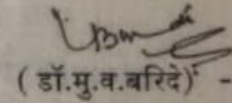 ( डॉ.मु.व.बरिदे) -